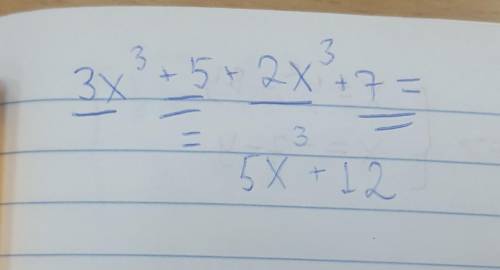 3x³ + 5 + 2x³ + 7 =
= 5x³ + 12